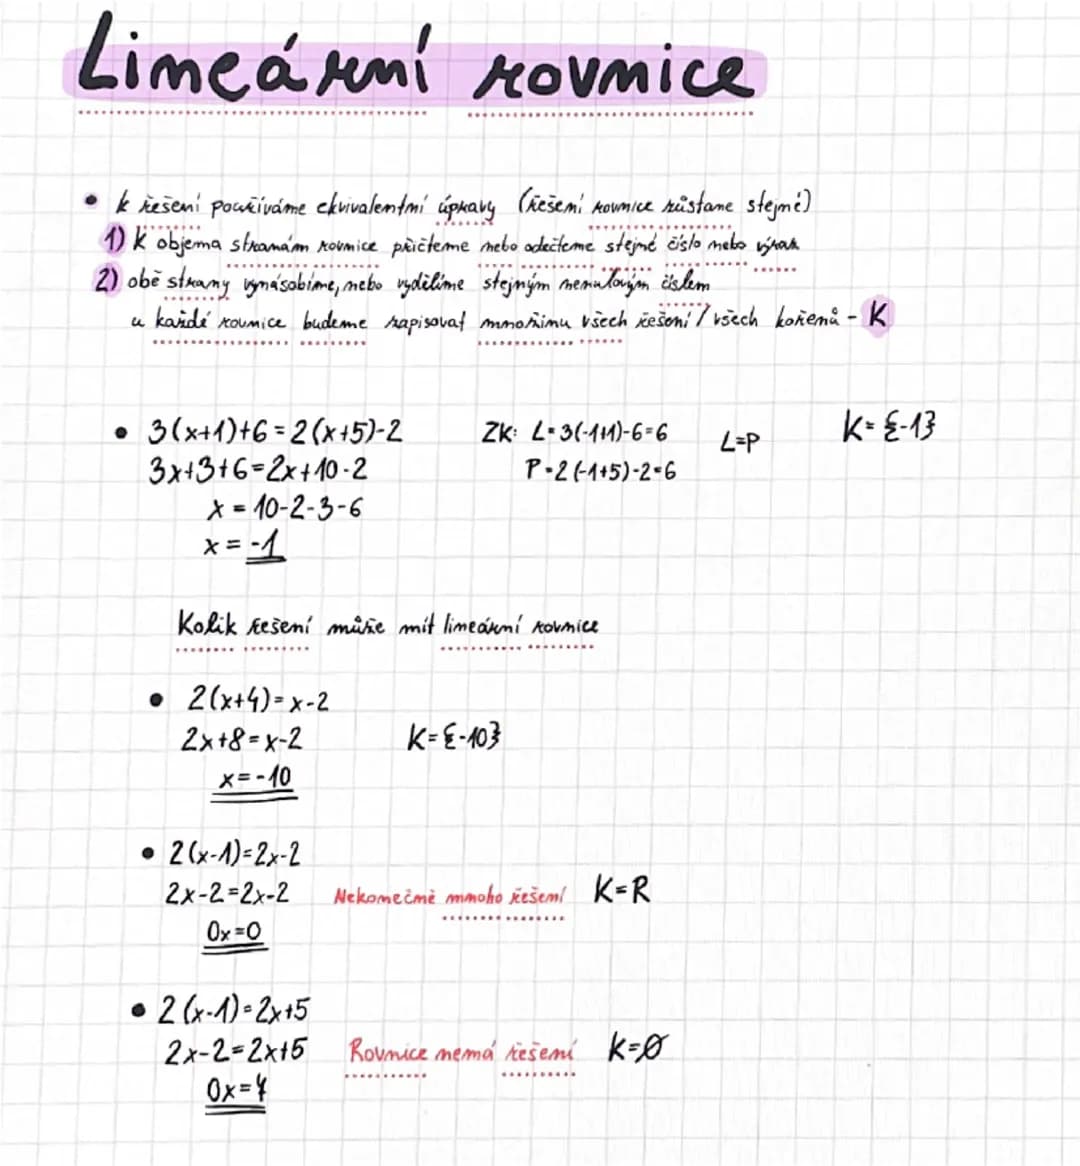 Lineární rovnice
• k řešení používáme ekvivalentní úpravy (řešení rovnice zůstane stejné)
1) K oběma stranám rovnice přičteme nebo odečteme stejné číslo nebo výraz
2) obě strany vynásobíme, nebo vydělíme stejným nenulovým číslem
u každé rovnice budeme zapisovat množinu všech řešení / všech kořenů - K
• 3(x+1)+6=2(x+5)-2 ZK: L=3(-1+1)-6=6 L=P K={-1}
3x+3+6=2x+10-2 P=2(-1+5)-2=6
x = 10-2-3-6
x = -1
Kolik řešení může mít lineární rovnice
• 2(x+4)=x-2
2x+8=x-2 K={-10}
x=-10
• 2(x-1)=2x-2
2x-2=2x-2 Nekonečně mnoho řešení K=R
0x=0
• 2(x-1)=2x+5
2x-2=2x+5 Rovnice nemá řešení K=∅
0x=7